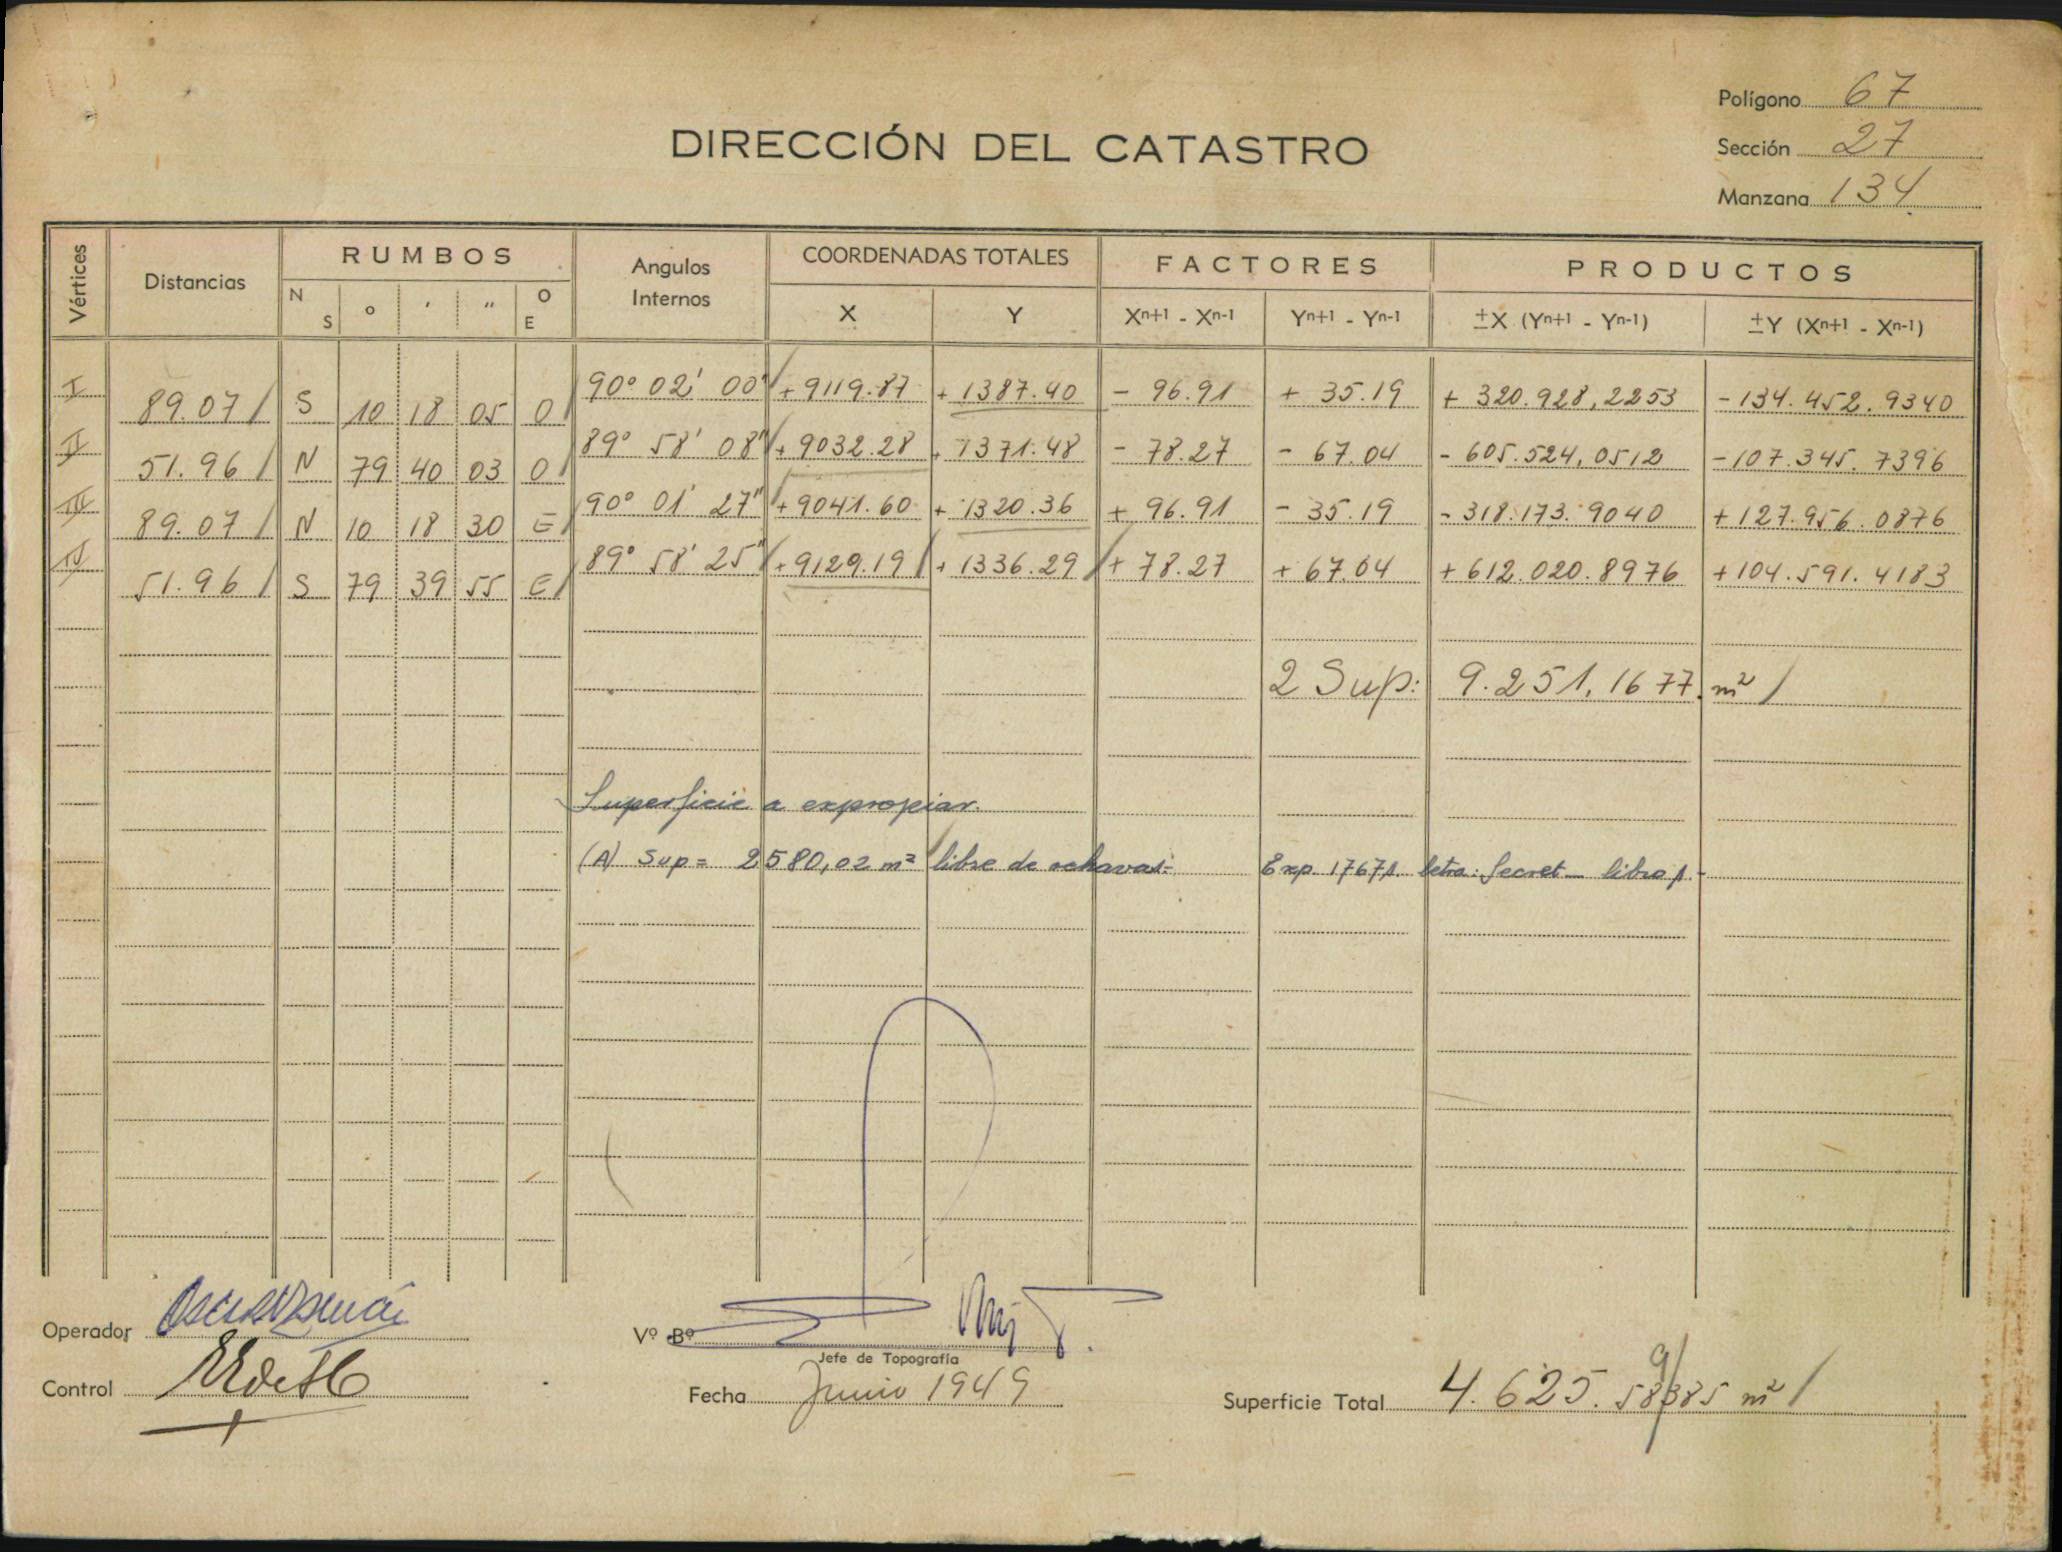 Polígono 67
DIRECCIÓN DEL CATASTRO
Sección 27
Manzana 134
Vértices Distancias RUMBOS Angulos Internos COORDENADAS TOTALES FACTORES PRODUCTOS
N S ° ′ ″ O E X Y Xn+1 - Xn-1 Yn+1 - Yn-1 ±X (Yn+1 - Yn-1) ±Y (Xn+1 - Xn-1)
I 89.07 S 10 18 05 O 90° 02' 00" +9119.87 + 1387.40 - 96.91 + 35.19 + 320.928,2253 -134.452.9340
II 51.96 N 79 40 03 O 89° 58' 08" +9032.28 + 1371.48 - 78.27 - 67.04 - 605.524,0512 -107.345.7396
III 89.07 N 10 18 30 E 90° 01' 27" +9041.60 + 1320.36 + 96.91 - 35.19 - 318.173.9040 +127.956.0876
IV 51.96 S 79 39 55 E 89° 58' 25" +9129.19 + 1336.29 + 78.27 + 67.04 + 612.020.8976 +104.591.4183
2 Sup: 9.251,1677 m²
Superficie a expropiar.
(A) Sup = 2580,02 m² libre de ochavas.- Exp. 17671. letra: Secret - libro 1.-
Operador
Vº Bº
Jefe de Topografía
Control
Fecha Junio 1949
Superficie Total 4.625.58385 m²
9